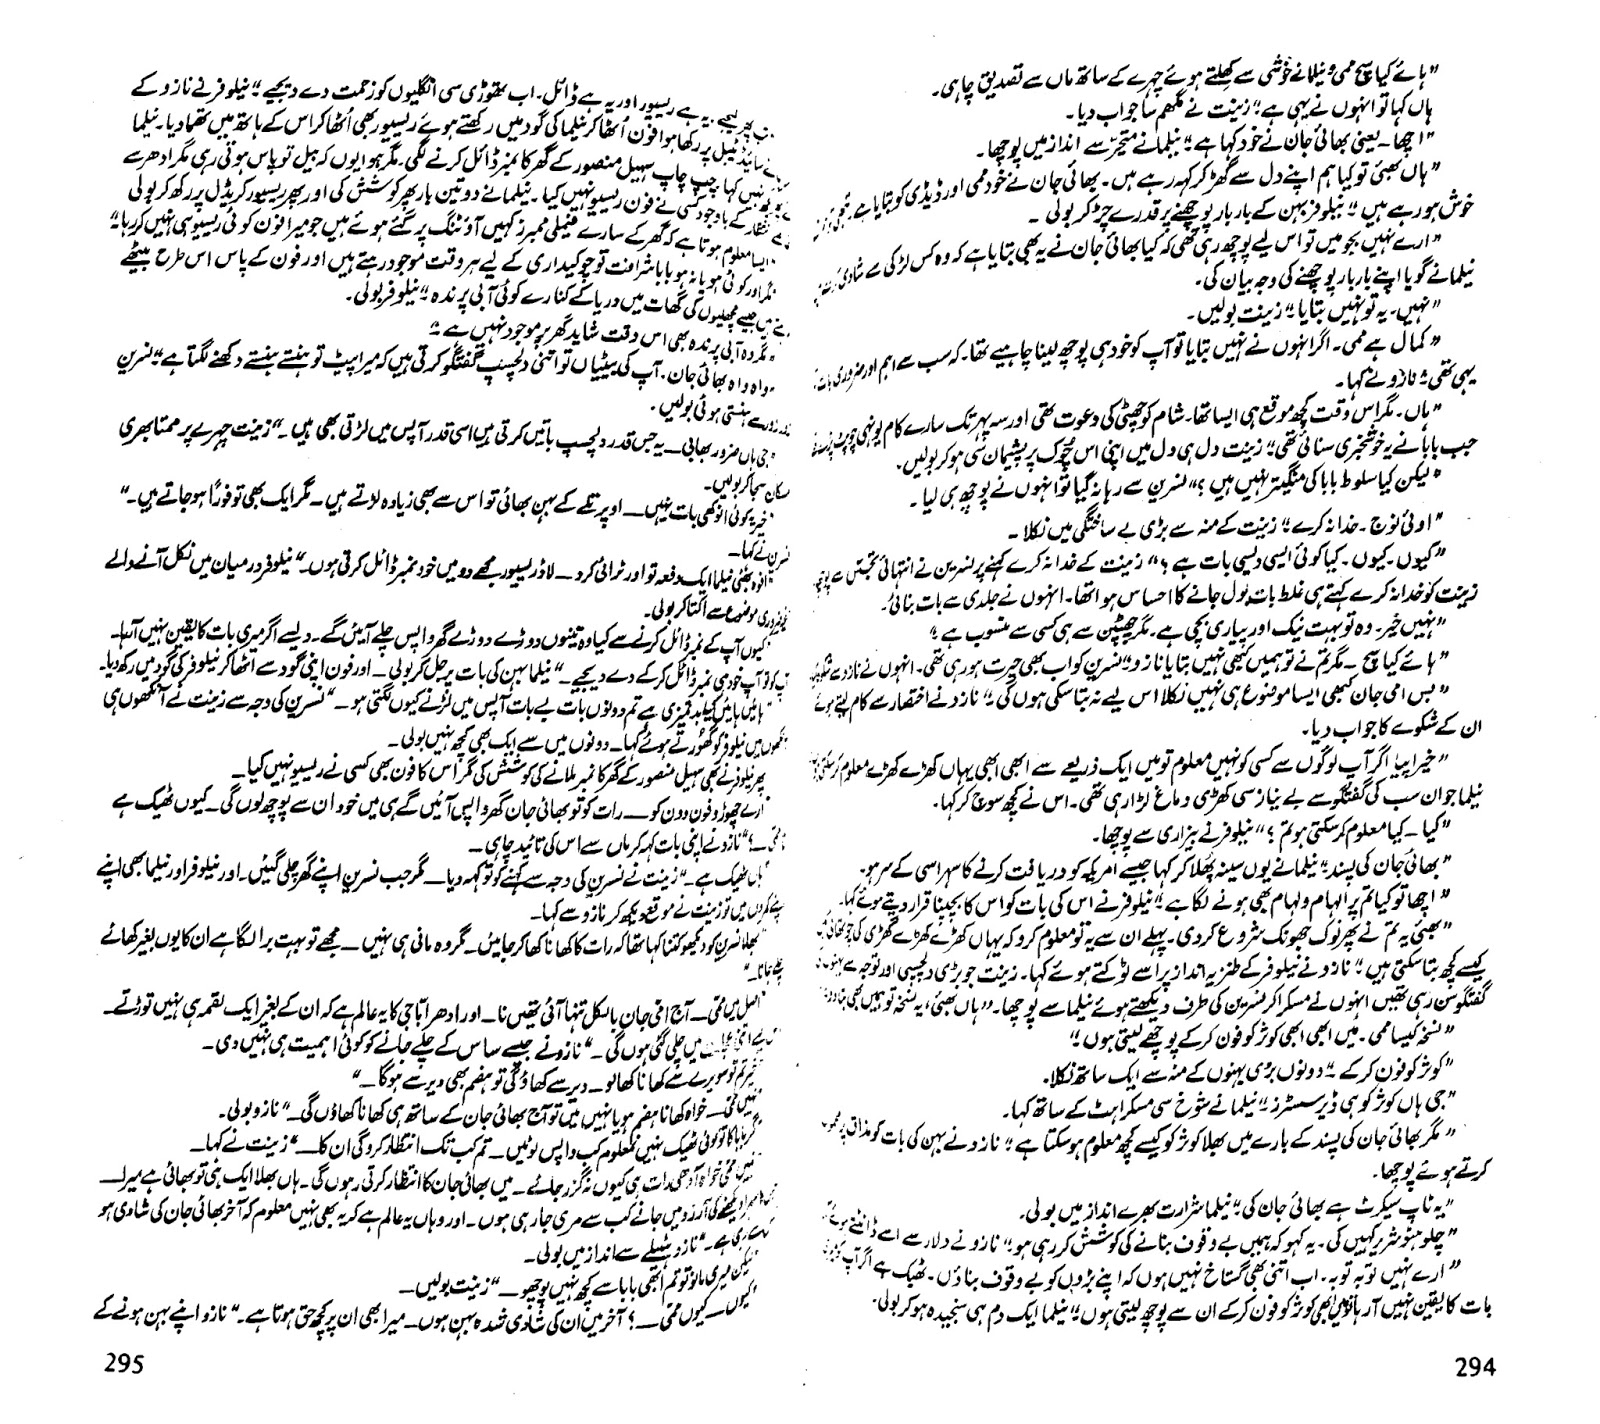 "ہائے کیا سچ ممی۔ نیلما نے خوشی سے کھلتے ہوئے چہرے کے ساتھ ماں سے تصدیق چاہی۔
ہاں کہا تو انہوں نے یہی ہے" زینت نے مگھم سا جواب دیا۔
"اچھا۔ یعنی بھائی جان نے خود کہا ہے" نیلما نے متحیر سے انداز میں پوچھا۔
"ہاں بھئی تو کیا ہم اپنے دل سے گھڑ کر کہہ رہے ہیں۔ بھائی جان نے خود ممی اور ڈیڈی کو بتایا ہے۔
خوش ہو رہے ہیں" نیلوفر بہن کے بار بار پوچھنے پر قدرے چڑ کر بولی۔
"ارے نہیں بجو میں تو اس لیے پوچھ رہی تھی کہ کیا بھائی جان نے یہ بھی بتایا ہے کہ وہ کس لڑکی سے شادی
نیلما نے گویا اپنے بار بار پوچھنے کی وجہ بیان کی۔
"نہیں۔ یہ تو نہیں بتایا" زینت بولیں۔
"کمال ہے ممی۔ اگر انہوں نے نہیں بتایا تو آپ کو خود ہی پوچھ لینا چاہیے تھا۔ کہ سب سے اہم اور ضروری بات
یہی تھی" نازو نے کہا۔
"ہاں۔ مگر اس وقت کچھ موقع ہی ایسا تھا۔ شام کو چھٹی کی دعوت تھی اور سہ پہر تک سارے کام یونہی
جب بابا نے یہ خوشخبری سنائی تھی" زینت دل ہی دل میں اپنی اس چوک پر پشیمان سی ہو کر بولیں۔
"لیکن کیا سلوط بابا کی منگیتر نہیں ہیں؟" نسرین سے رہا نہ گیا تو انہوں نے پوچھ ہی لیا۔
"اوئی نوج۔ خدا نہ کرے" زینت کے منہ سے بڑی بے ساختگی میں نکلا۔
"کیوں۔ کیوں۔ کیا کوئی ایسی ویسی بات ہے؟" زینت کے خدا نہ کرے کہنے پر نسرین نے انتہائی تجسس سے پوچھا
زینت کو خدا نہ کرے کہتے ہی غلط بات بول جانے کا احساس ہوا تھا۔ انہوں نے جلدی سے بات بنائی۔
"نہیں خیر۔ وہ تو بہت نیک اور پیاری بچی ہے۔ مگر چھٹپن سے ہی کسی سے منسوب ہے"
"ہائے کیا سچ۔ مگر تم نے تو ہمیں کبھی نہیں بتایا نازو" نسرین کو اب بھی حیرت ہو رہی تھی۔ انہوں نے نازو سے
"بس امی جان کبھی ایسا موضوع ہی نہیں نکلا اس لیے نہ بتا سکی ہوں گی" نازو نے اختصار سے کام لیتے ہوئے
ان کے شکوے کا جواب دیا۔
"خیر اپیا اگر آپ لوگوں سے کسی کو نہیں معلوم تو میں ایک ذریعے سے ابھی ابھی یہاں کھڑے کھڑے معلوم کر سکتی
نیلما جو ان سب کی گفتگو سے بے نیاز سی کھڑی دماغ لڑا رہی تھی۔ اس نے کچھ سوچ کر کہا۔
"کیا۔ کیا معلوم کر سکتی ہو تم؟" نیلوفر نے بیزاری سے پوچھا۔
"بھائی جان کی پسند" نیلما نے یوں سینہ پھلا کر کہا جیسے امریکہ کو دریافت کرنے کا سہرا اسی کے سر ہو۔
"اچھا تو کیا تم پر الہام ولہام بھی ہونے لگا ہے" نیلوفر نے اس کی بات کو اس کا بچپنا قرار دیتے ہوئے کہا۔
"بھئی یہ تم نے پھر نوک جھونک شروع کر دی۔ پہلے ان سے یہ تو معلوم کرو کہ یہاں کھڑے کھڑے گھڑی کی چوتھائی
کیسے کچھ بتا سکتی ہیں" نازو نے نیلوفر کے طنزیہ انداز پر اسے ٹوکتے ہوئے کہا۔ زینت جو بڑی دلچسپی اور توجہ سے
گفتگو سن رہی تھیں انہوں نے مسکرا کر نسرین کی طرف دیکھتے ہوئے نیلما سے پوچھا۔ "ہاں بھئی، یہ نسخہ تو ہمیں بھی بتا دو"
"نسخہ کیسا ممی۔ میں ابھی ابھی کوثر کو فون کر کے پوچھ لیتی ہوں"
"کوثر کو فون کر کے" دونوں بڑی بہنوں کے منہ سے ایک ساتھ نکلا۔
"جی ہاں کوثر کو ہی ڈیر سسٹرز" نیلما نے شوخ سی مسکراہٹ کے ساتھ کہا۔
"مگر بھائی جان کی پسند کے بارے میں بھلا کوثر کو کیسے کچھ معلوم ہو سکتا ہے" نازو نے بہن کی بات کو مذاق پر محمول
کرتے ہوئے پوچھا۔
"یہ ٹاپ سیکرٹ ہے بھائی جان کی" نیلما شرارت بھرے انداز میں بولی۔
"چلو ہٹو شریر کہیں کی۔ یہ کہو کہ ہمیں بے وقوف بنانے کی کوشش کر رہی ہو" نازو نے دلار سے اسے ڈانٹتے ہوئے
"ارے نہیں توبہ توبہ۔ اب اتنی بھی گستاخ نہیں ہوں کہ اپنے بڑوں کو بے وقوف بناؤں۔ ٹھیک ہے اگر آپ کو
بات کا یقین نہیں آ رہا تو میں ابھی کوثر کو فون کر کے ان سے پوچھ لیتی ہوں" نیلما ایک دم ہی سنجیدہ ہو کر بولی۔
294
پھر لیجیے یہ ہے ریسیور اور یہ ہے ڈائل۔ اب تھوڑی سی انگلیوں کو زحمت دے دیجیے" نیلوفر نے نازو کے
سائیڈ ٹیبل پر رکھا ہوا فون اٹھا کر نیلما کی گود میں رکھتے ہوئے ریسیور بھی اٹھا کر اس کے ہاتھ میں تھما دیا۔ نیلما
نہیں کہا چپ چاپ سہیل منصور کے گھر کا نمبر ڈائل کرنے لگی۔ مگر ہوا یوں کہ بیل تو پاس ہوتی رہی مگر ادھر سے
انتظار کے باوجود کسی نے فون ریسیو نہیں کیا۔ نیلما نے دو تین بار پھر کوشش کی اور پھر ریسیور کریڈل پر رکھ کر بولی
"ایسا معلوم ہوتا ہے کہ گھر کے سارے فیملی ممبرز کہیں آؤٹنگ پر گئے ہوئے ہیں جو میرا فون کوئی ریسیو ہی نہیں کر رہا"
مگر اور کوئی ہو یا نہ ہو بابا شرافت تو چوکیداری کے لیے ہر وقت موجود رہتے ہیں اور فون کے پاس اس طرح بیٹھے
ہیں جیسے مچھلیوں کی گھات میں دریا کے کنارے کوئی آبی پرندہ" نیلوفر بولی۔
"مگر وہ آبی پرندہ بھی اس وقت شاید گھر پر موجود نہیں ہے"
"واہ واہ بھائی جان۔ آپ کی بیٹیاں تو اتنی دلچسپ گفتگو کرتی ہیں کہ میرا پیٹ تو ہنستے ہنستے دکھنے لگتا ہے" نسرین
زور سے ہنستی ہوئی بولیں۔
"جی ہاں ضرور بھابی۔ یہ جس قدر دلچسپ باتیں کرتی ہیں اسی قدر آپس میں لڑتی بھی ہیں۔" زینت چہرے پر ممتا بھری
مسکان سجا کر بولیں۔
"خیر یہ کوئی انوکھی بات نہیں۔ اوپر تلے کے بہن بھائی تو اس سے بھی زیادہ لڑتے ہیں۔ مگر ایک بھی تو فوراً ہو جاتے ہیں۔"
نسرین نے کہا۔
"افوہ بھئی نیلما ایک دفعہ تو اور ٹرائی کرو۔ لاؤ ریسیور مجھے دو میں خود نمبر ڈائل کرتی ہوں۔" نیلوفر درمیان میں نکل آنے والے
غیر ضروری موضوع سے اکتا کر بولی۔
کیوں آپ کے نمبر ڈائل کرنے سے کیا وہ تینوں دوڑے دوڑے گھر واپس چلے آئیں گے۔ ویسے اگر میری بات کا یقین نہیں آ رہا۔
آپ کو تو آپ خود ہی نمبر ڈائل کر کے دے دیجیے۔" نیلما بہن کی بات پر جل کر بولی۔ اور فون اپنی گود سے اٹھا کر نیلوفر کی گود میں رکھ دیا۔
ہائیں ہائیں کیا بدتمیزی ہے تم دونوں بات بے بات آپس میں لڑنے کیوں لگتی ہو۔" نسرین کی وجہ سے زینت نے آنکھوں ہی
آنکھوں میں نیلوفر کو گھورتے ہوئے کہا۔ دونوں میں سے ایک بھی کچھ نہیں بولی۔
پھر نیلوفر نے بھی سہیل منصور کے گھر کا نمبر ملانے کی کوشش کی مگر اس کا فون بھی کسی نے ریسیو نہیں کیا۔
ارے چھوڑو فون وون کو۔ رات کو تو بھائی جان گھر واپس آئیں گے ہی میں خود ان سے پوچھ لوں گی۔ کیوں ٹھیک ہے
ممی۔؟" نازو نے اپنی بات کہہ کر ماں سے اس کی تائید چاہی۔
ہاں ٹھیک ہے۔" زینت نے نسرین کی وجہ سے کہنے کو تو کہہ دیا۔ مگر جب نسرین اپنے گھر چلی گئیں۔ اور نیلوفر اور نیلما بھی اپنے
اپنے کمروں میں تو زینت نے موقع دیکھ کر نازو سے کہا۔
بھلا نسرین کو دیکھو کتنا کہا تھا کہ رات کا کھانا کھا کر جائیں۔ مگر وہ مانی ہی نہیں۔ مجھے تو بہت برا لگا ہے ان کا یوں بغیر کھائے
چلے جانا۔"
اصل میں ممی۔ آج امی جان بالکل تنہا آئی تھیں نا۔ اور ادھر ابا جی کا یہ عالم ہے کہ ان کے بغیر ایک لقمہ ہی نہیں توڑتے۔
میں چلی گئی ہوں گی۔" نازو نے جیسے ساس کے چلے جانے کو کوئی اہمیت ہی نہیں دی۔
خیر تم تو سویرے سے کھانا کھا لو۔ دیر سے کھاؤ گی تو ہضم بھی دیر سے ہو گا۔"
نہیں ممی۔ خواہ کھانا ہضم ہو یا نہیں میں تو آج بھائی جان کے ساتھ ہی کھانا کھاؤں گی۔" نازو بولی۔
مگر بابا کا تو کوئی ٹھیک نہیں نہ معلوم کب واپس لوٹیں۔ تم کب تک انتظار کرو گی ان کا۔" زینت نے کہا۔
نہیں ممی خواہ آدھی رات ہی کیوں نہ گزر جائے۔ میں بھائی جان کا انتظار کرتی رہوں گی۔ ہاں بھلا ایک ہی تو بھائی ہے میرا۔
دیکھنے کی آرزو میں جانے کب سے مری جا رہی ہوں۔ اور وہاں یہ عالم ہے کہ یہ بھی نہیں معلوم کہ آخر بھائی جان کی شادی ہو
رہی ہے۔" نازو ہٹیلے سے انداز میں بولی۔
لیکن میری مانو تو تم ابھی بابا سے کچھ نہیں پوچھو۔" زینت بولیں۔
کیوں۔ کیوں ممی۔؟ آخر میں ان کی شادی شدہ بہن ہوں۔ میرا بھی ان پر کچھ حق ہوتا ہے۔" نازو اپنے بہن ہونے کے
295